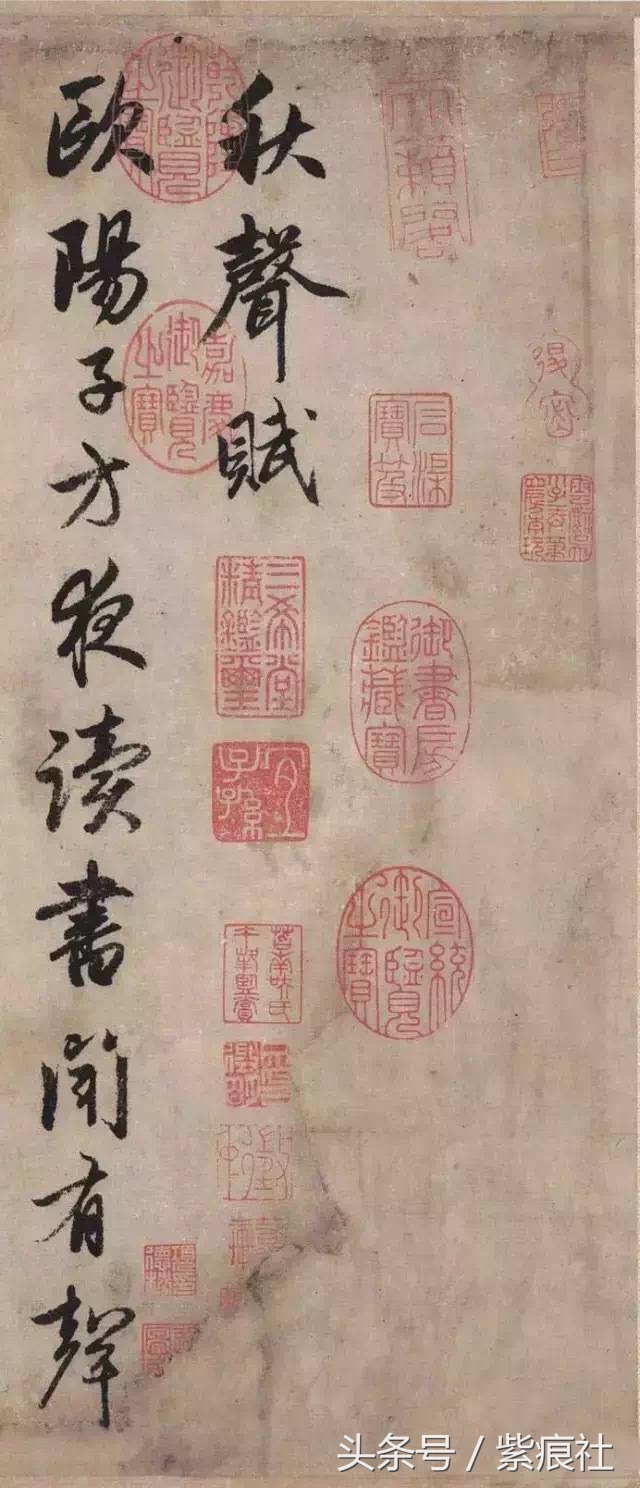 天籟閣
石渠寶笈
御書房鑑藏寶
宣統御覽之寶
秋聲賦
三希堂精鑑璽
宜子孫
乾隆御覽之寶
嘉慶御覽之寶
歐陽子方夜讀書聞有聲
头条号 / 紫痕社